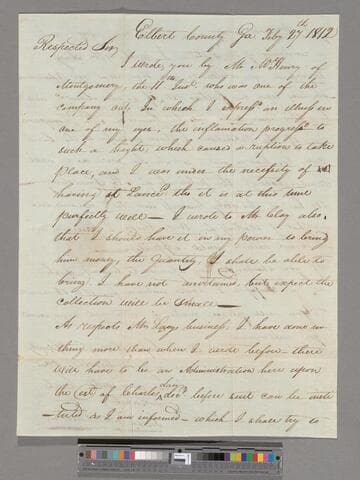 Elbert County Ga Feby 27th 1812
Respected Sir
I wrote you by Mr McHenry of
Montgomery the 11th Inst. who was one of the
company and In which I express'd an illness in
one of my eyes, the inflamation progress'd to
such a height which caused a ruption to take
place, and I was under the necessity of
having it Lanced tho it is at this time
purfectly well — I wrote to Mr Clay also
that I should have it in my power to bring
him money, the quantity I shall be able to
bring I have not assertained, but expect the
collection will be Small —
As respects Mr Days business, I have done no
thing more than when I wrote before — there
will have to be an Administration here upon
the Est of Charles Day decd before suit can be insti
-tuted as I am informed — which I shall try to